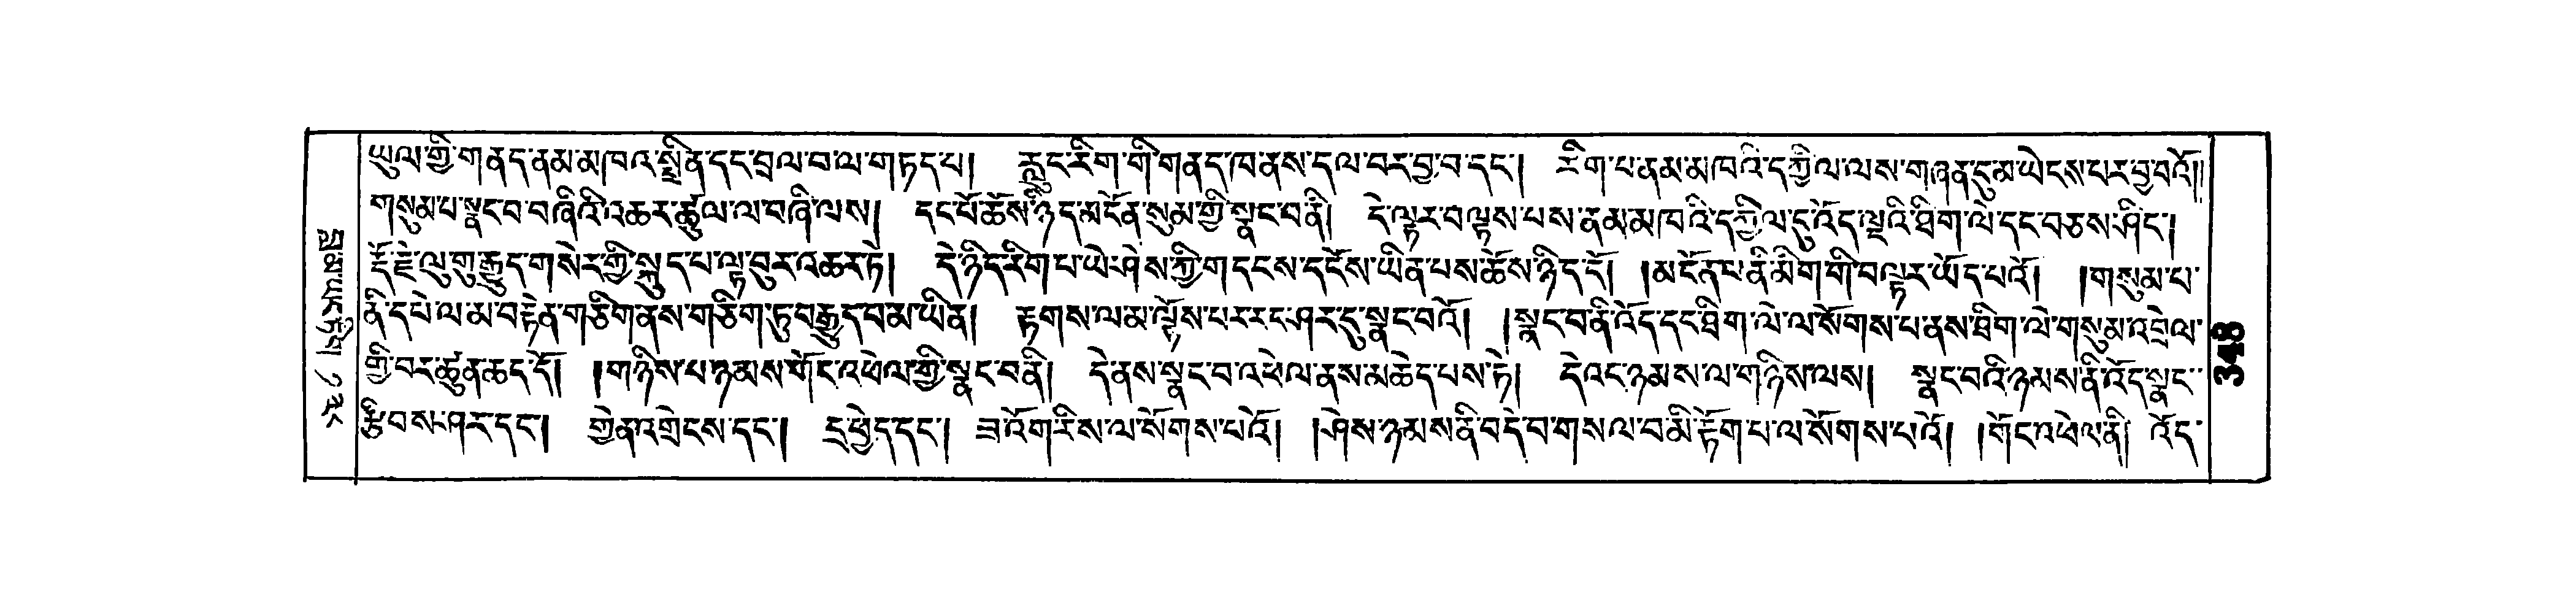 ཡུལ་གྱི་གནད་ནམ་མཁའ་སྤྲིན་དང་བྲལ་བ་ལ་གཏད་པ། རླུང་རིག་གི་གནད་ཁ་ནས་དལ་བར་བྱ་བ་དང༌། རིག་པ་ནམ་མཁའི་དཀྱིལ་ལས་གཞན་དུ་མ་ཡེངས་པར་བྱ་བའོ།།
གསུམ་པ་སྣང་བ་བཞིའི་འཆར་ཚུལ་ལ་བཞི་ལས། དང་པོ་ཆོས་ཉིད་མངོན་སུམ་གྱི་སྣང་བ་ནི། དེ་ལྟར་བལྟས་པས་ནམ་མཁའི་དཀྱིལ་དུ་འོད་ལྔའི་ཐིག་ལེ་དང་བཅས་ཤིང༌།
རྡོ་རྗེ་ལུ་གུ་རྒྱུད་གསེར་གྱི་སྐུད་པ་ལྟ་བུར་འཆར་ཏེ། དེ་ཉིད་རིག་པ་ཡེ་ཤེས་ཀྱི་གདངས་དངོས་ཡིན་པས་ཆོས་ཉིད་དོ། །མངོན་པ་ནི་མིག་གི་བལྟར་ཡོད་པའོ། །གསུམ་པ་
ནི་དཔེ་ལ་མ་བརྟེན་གཅིག་ནས་གཅིག་ཏུ་བརྒྱུད་བ་མ་ཡིན། རྟགས་ལ་མ་ལྟོས་པར་རང་ཤར་དུ་སྣང་བའོ། །སྣང་བ་ནི་འོད་དང་ཐིག་ལེ་ལ་སོགས་པ་ནས་ཐིག་ལེ་གསུམ་འབྲེལ་
གྱི་བར་ཚུན་ཆད་དོ། །གཉིས་པ་ཉམས་གོང་འཕེལ་གྱི་སྣང་བ་ནི། དེ་ནས་སྣང་བ་འཕེལ་ནས་མཆེད་པས་ཏེ། དེའང་ཉམས་ལ་གཉིས་ལས། སྣང་བའི་ཉམས་ནི་འོད་སྣང་
རྩིབས་ཤར་དང༌། གྱེན་འགྲེངས་དང༌། དྲ་ཕྱེད་དང༌། ཟ་འོག་རིས་ལ་སོགས་པའོ། །ཤེས་ཉམས་ནི་བདེ་བ་གསལ་བ་མི་རྟོག་པ་ལ་སོགས་པའོ། །གོང་འཕེལ་ནི། འོད་